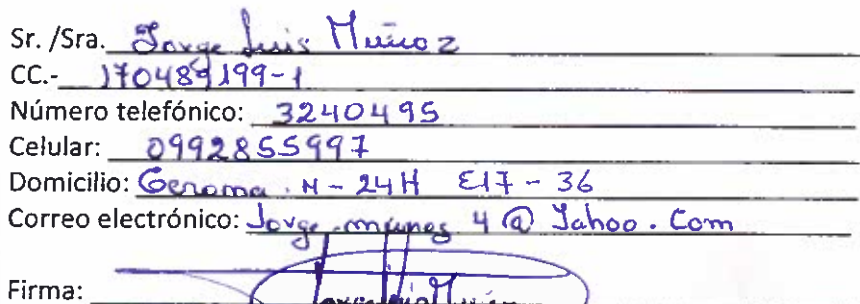 Sr. /Sra. Jorge Luis Muñoz
CC.- 170489199-1
Número telefónico: 3240495
Celular: 0992855997
Domicilio: Geroma N-24H E17-36
Correo electrónico: Jorge-munoz 4 @ Yahoo. Com
Firma: